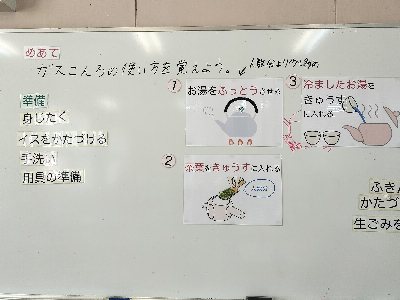 めあて
ガスこんろの使い方を覚えよう。
準備
身じたく
イスをかたづける
手洗い
用具の準備
①
お湯をふっとうさせる
②
茶葉をきゅうすに入れる
③
冷ましたお湯を
きゅうす
に入れる
ふきん
かたづ
生ごみを